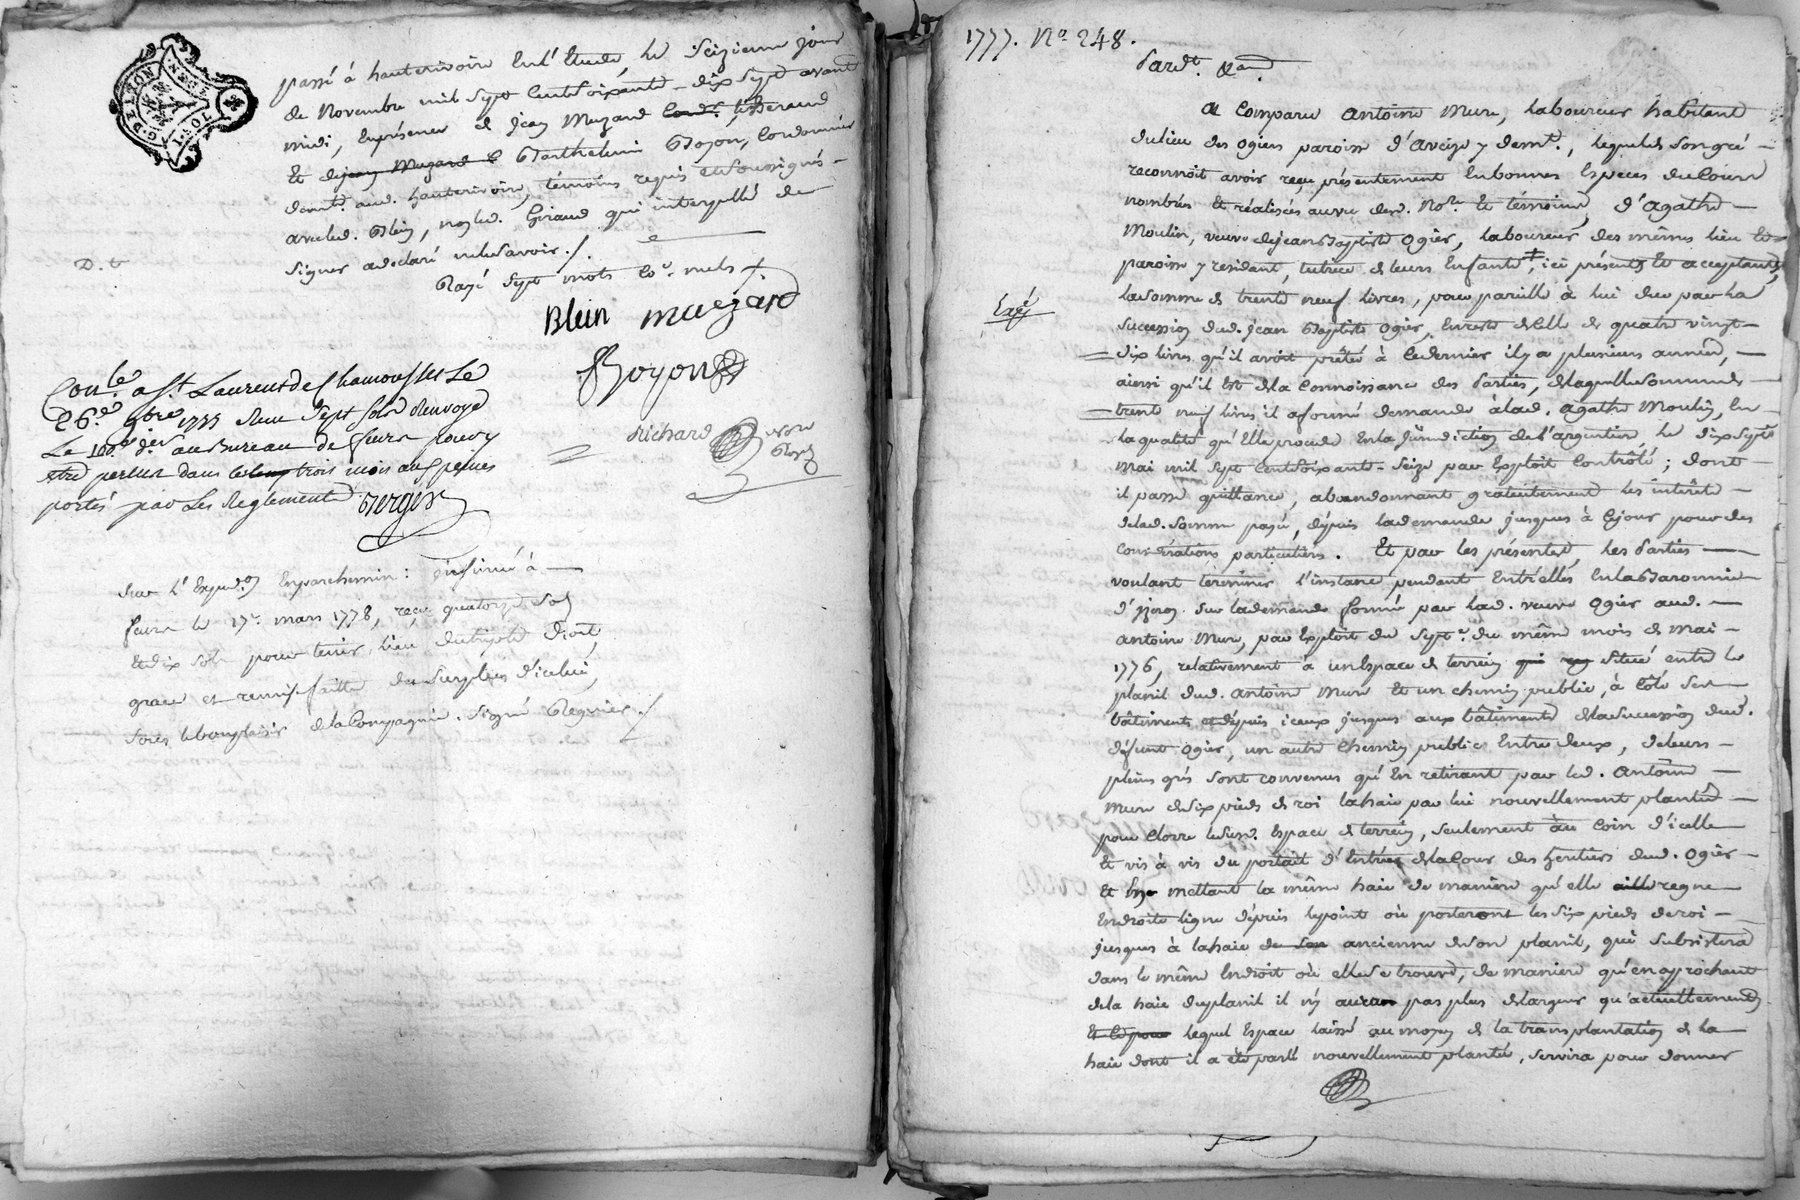 passé à hauterivoire En l'Etude, le seizieme jour
de Novembre mil sept Cent soixante-dix sept avant
midi, En présence de jean Muzard tisserand
Et de Barthelemi Boyon, Cordonnier
demt. aud. hauterivoire, témoins requis et soussignés
avec led. Blein, non led. Giraud qui interpellé de
signer a déclaré ne le savoir ./.
Rayé sept mots co.e nuls
Blein muzard
Boyon
D. t
Richard
Conlé. a St. Laurent de Chamousset Le
26.e 9bre 1777 Reçu sept sols Renvoyé
Le 100e d.er au Bureau de feurs pour y
etre perçus dans trois mois aux peines
portés par Les Reglements
Sur l'Exped.on En parchemin : insinué à
feurs le 17.e mars 1778, reçu quatorze sols
Et dix sols pour tenir lieu du triple droit,
grace et remise faitte du surplus d'icelui,
sous le bon plaisir de la Compagnie. Signé Regnier ./
GD. LYON
1777. No. 248.
Pardt. &am.
A Comparu Antoine Mure, laboureur habitant
du lieu des Ogiers paroisse d'Aveize y demt., lequel de son gré
reconnoit avoir reçu présentement En bonnes Especes du Cours
nombrées Et réalisées au vu dud. No.re Et témoins, d'Agathe
Moulin, veuve de jean Baptiste Ogier, laboureur des mêmes lieu Et
paroisse y residant, tutrice de leurs Enfants, ici présents Et acceptants,
la somme de trente neuf livres, pour pareille à lui due par la
Succession dud. Jean Baptiste Ogier, En reste de celle de quatre vingt
dix livres qu'il avoit prêté à ce dernier il y a plusieurs années,
ainsi qu'il Est de la Connoissance des Parties, de laquelle somme de
trente neuf livres il a formé demande à lad. Agathe Moulin, En
la qualité qu'Elle procede En la Jurisdiction de l'argentiere, le dix sept
mai mil sept Cent soixante-seize par Exploit Contrôlé ; dont
il passe quittance, abandonnant gratuitement les intérêts
de lad. somme payée, depuis la demande jusques à Ce jour pour des
Considérations particulieres. Et par les présentes les Parties
voulant terminer l'instance pendente Entr'elles En la Baronnie
d'yzeron sur la demande formée par lad. veuve Ogier aud.
Antoine Mure, par Exploit du sept.e du même mois de Mai
1776, relativement à un Espace de terrein qui situé entre le
planil dud. Antoine Mure Et un chemin public, à Côté ses
bâtiments et depuis iceux jusques aux bâtiments de la Succession dud.
défunt Ogier, un autre Chemin public Entre deux, de leurs
pleins grés sont convenus qu'En retirant par led. Antoine
Mure de six pieds de roi la haie par lui nouvellement plantée
pour Clorre le susd. Espace de terrein, seulement au Coin d'icelle
Et vis à vis du portail d'Entrée de la Cour des héritiers dud. Ogier
Et mettant la même haie de maniere qu'elle regne
En droite ligne depuis le point où porteront les six pieds de roi
jusques à la haie de son ancienne de son planil, qui subsistera
dans le même Endroit où elle se trouve, de maniere qu'en approchant
de la haie du planil il n'y aura pas plus de largeur qu'actuellement
Et ce pour lequel Espace laissé au moyen de la transplantation de la
haie dont il a été parlé nouvellement plantée, servira pour donner